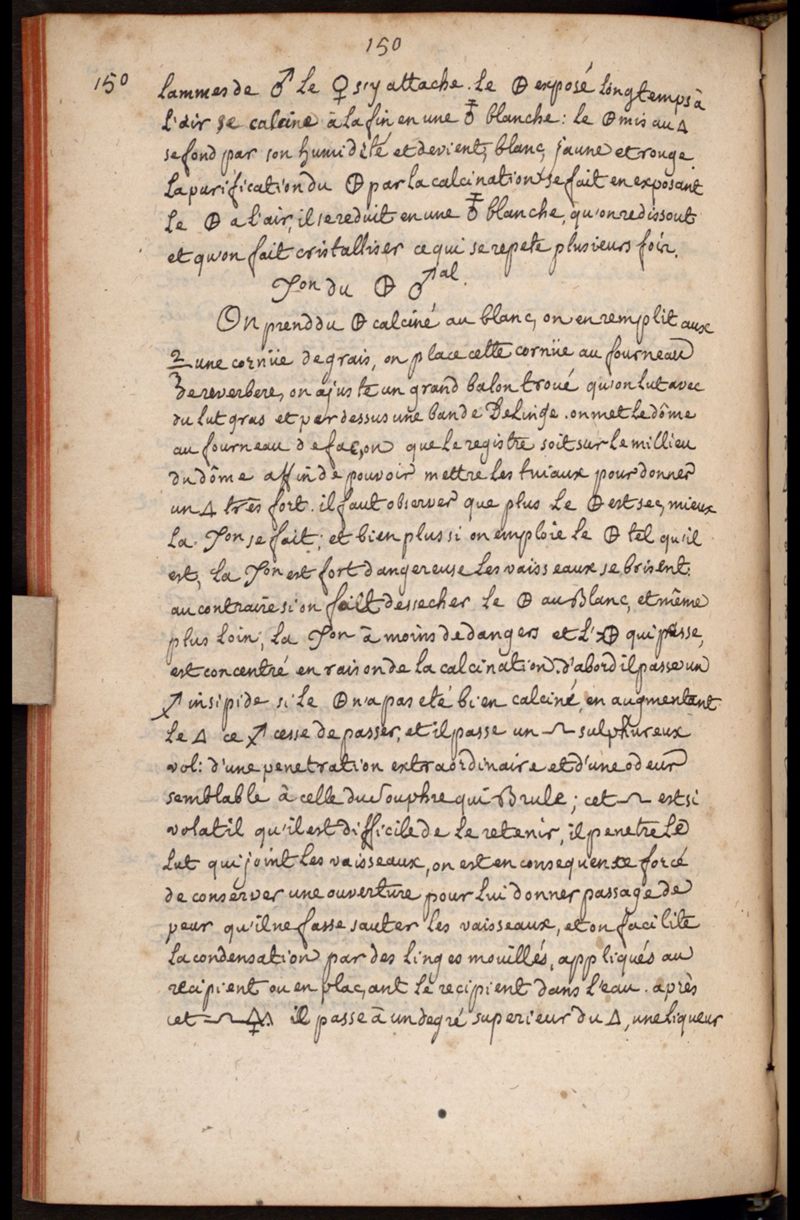 150
150 lammes de ♂ le ♀ s'y attache. le 🜨 exposé longtemps à
l'air se calcine à la fin en une ♁ blanche: le 🜨 mis au 🜂
se fond par son humidité et devient, blanc, jaune et rouge.
la purification du 🜨 par la calcination se fait en exposant
le 🜨 a l'air, il se reduit en une ♁ blanche, qu'on redissout
et qu'on fait cristalliser ce qui se repete plusieurs fois.
Don du 🜨 ♂al.
On prend du 🜨 calciné au blanc, on en remplit aux
2/ une cornüe de grais, on place cette cornüe au fourneau
de reverbere, on ajuste un grand balon troué qu'on lut avec
du lut gras et par dessus une bande De Linge. on met le dôme
au fourneau de façon que le registre soit sur le millieu
du dôme affin de pouvoir mettre les tuiaux pour donner
un 🜂 très fort. il faut observer que plus le 🜨 est sec, mieux
la Don se fait; et bien plus si on emploie le 🜨 tel qu'il
est, la Don est fort dangereuse les vaisseaux se brisent.
au contraire si on fait dessecher le 🜨 au Blanc, et même
plus loin, la Don à moins de dangers et l' qui passe,
est concentré en raison de la calcination. d'abord il passe un
insipide si le 🜨 n'a pas eté bien calciné, en augmentant
le 🜂 ce cesse de passer, et il passe un sulphureux
vol: d'une penetration extraordinaire et d'une odeur
semblable à celle du Souphre qui Brule; cet est si
volatil qu'il est difficile de le retenir, il penetre le
lut qui joint les vaisseaux, on est en consequence forcé
de conserver une ouverture pour lui donner passage de
peur qu'il ne fasse sauter les vaisseaux, et on facilite
la condensation par des linges mouillés, appliqués au
recipient ou en plaçant le recipient dans l'eau. après
cet il passe à un degré superieur du 🜂, une liqueur